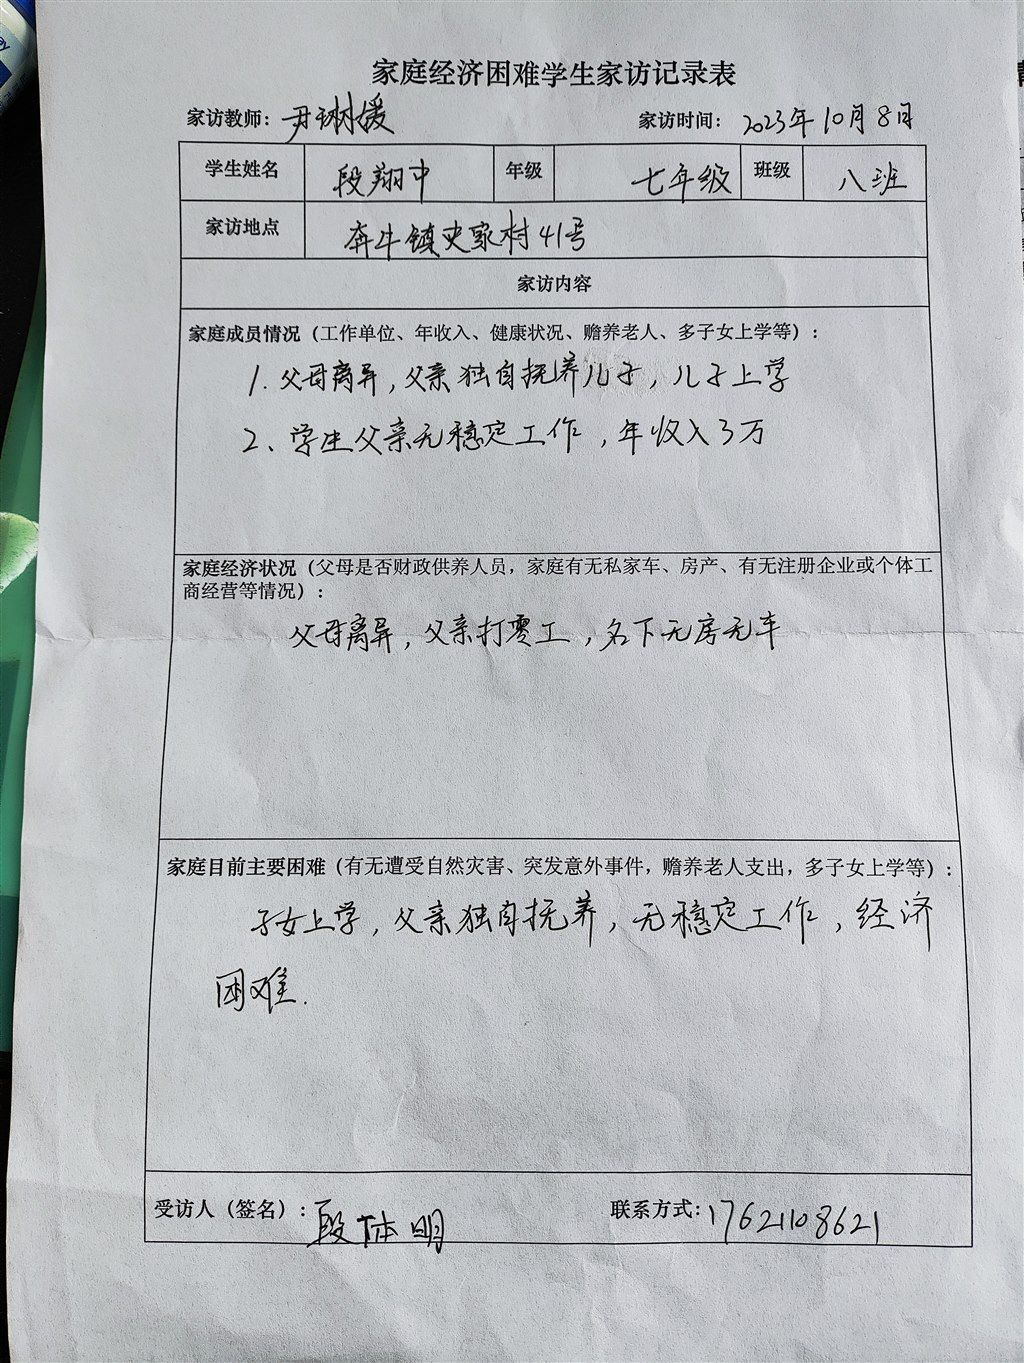 家庭经济困难学生家访记录表
家访教师：尹琳媛 家访时间：2023年10月8日
学生姓名 段翔中 年级 七年级 班级 八班
家访地点 奔牛镇史家村41号
家访内容
家庭成员情况（工作单位、年收入、健康状况、赡养老人、多子女上学等）：
1. 父母离异，父亲独自抚养儿子，儿子上学
2、学生父亲无稳定工作，年收入3万
家庭经济状况（父母是否财政供养人员，家庭有无私家车、房产、有无注册企业或个体工
商经营等情况）：
父母离异，父亲打零工，名下无房无车
家庭目前主要困难（有无遭受自然灾害、突发意外事件，赡养老人支出，多子女上学等）：
子女上学，父亲独自抚养，无稳定工作，经济
困难.
受访人（签名）：段体明 联系方式：17621108621